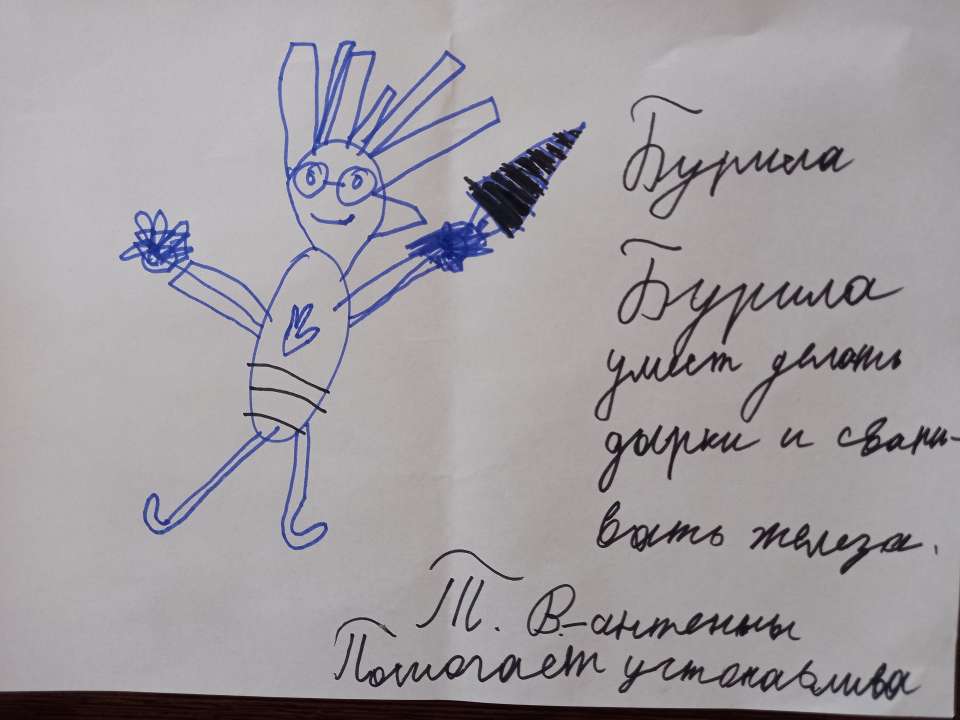 Бурила
Бурила
умеет делать
дырки и свари-
вать железа.
Т. В-антенны
Помогает устонавлива